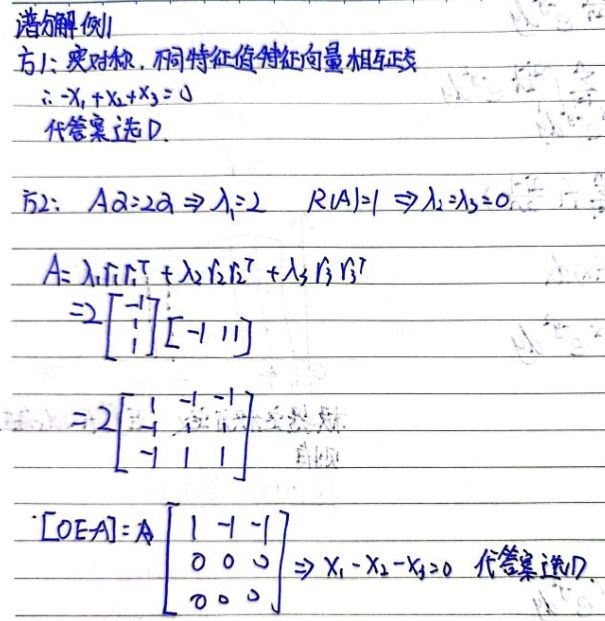 谱分解例1
方1: 实对称,不同特征值特征向量相互正交
∴ -x₁+x₂+x₃=0
代答案选D.
方2: Aα=2α ⇒ λ₁=2 R(A)=1 ⇒ λ₂=λ₃=0
A= λ₁r₁r₁ᵀ + λ₂r₂r₂ᵀ + λ₃r₃r₃ᵀ
=2 [-1 1 1] [-1 1 1]
=2 [1 -1 -1
-1 1 1
-1 1 1]
[0E-A]= [1 -1 -1
0 0 0 ⇒ x₁-x₂-x₃=0 代答案选D.
0 0 0]